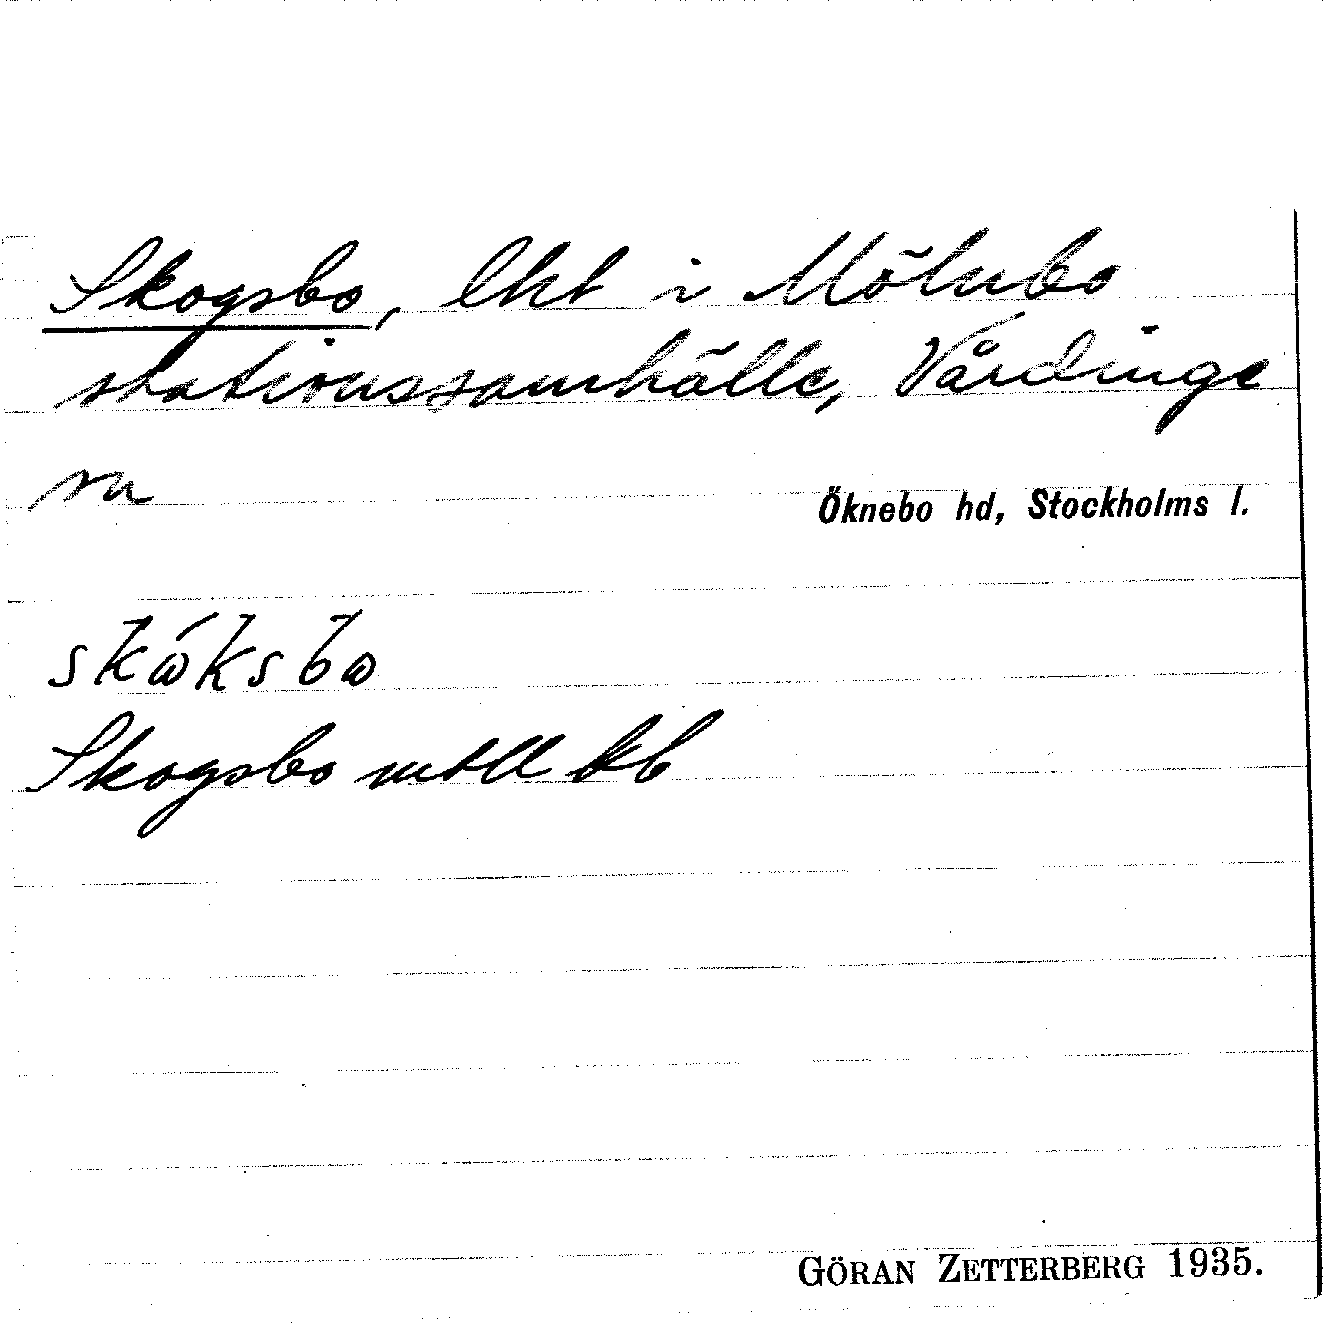 Skogsbo, lht i Mölnbo
stationssamhälle, Vårdinge
sn
Öknebo hd, Stockholms l.
skɷ́ksbɷ
Skogsbo mtll kb
GÖRAN ZETTERBERG 1935.